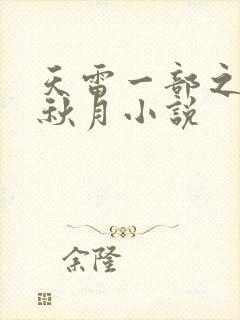 天雷一部之
秋月小說
余隆